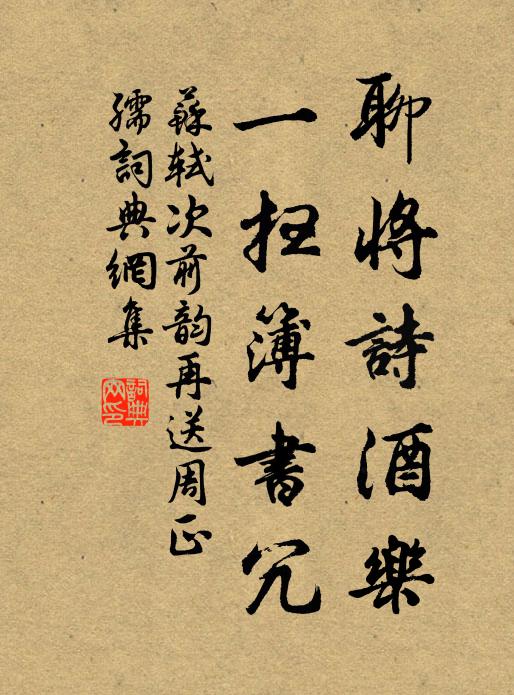 聊將詩酒樂
一扫簿書冗
蘇軾次前韵再送周正
孺詞典網集
詞典